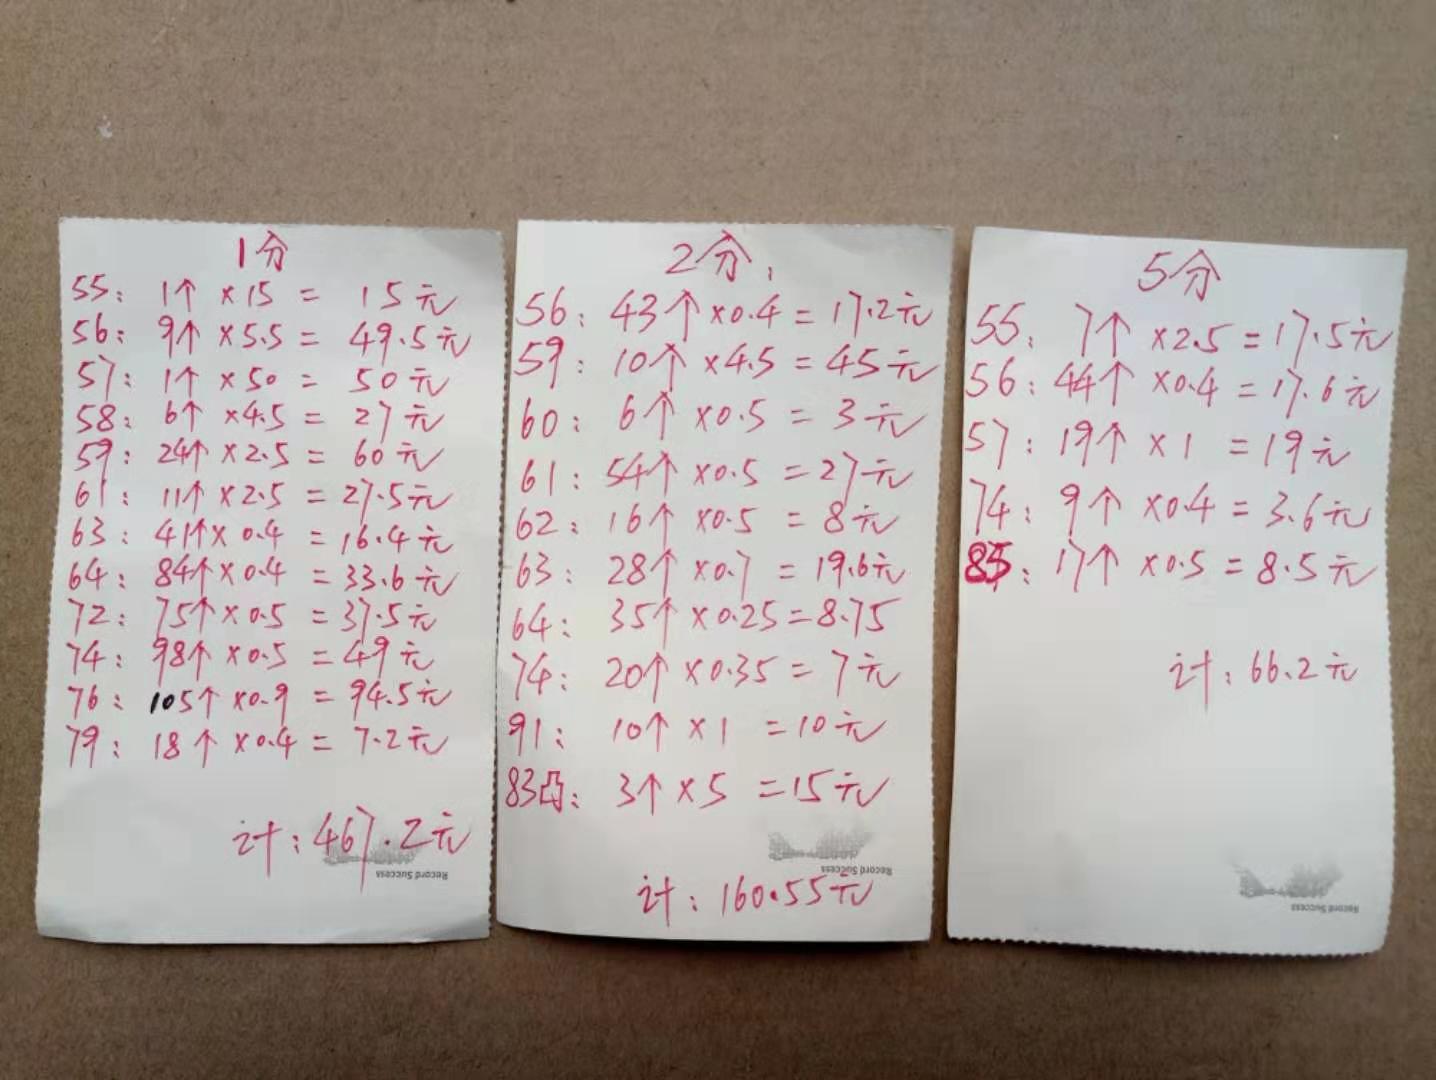 1分
55: 1个 ×15 = 15元
56: 9个 ×5.5 = 49.5元
57: 1个 ×50 = 50元
58: 6个 ×4.5 = 27元
59: 24个 ×2.5 = 60元
61: 11个 ×2.5 = 27.5元
63: 41个× 0.4 = 16.4元
64: 84个×0.4 = 33.6元
72: 75个×0.5 = 37.5元
74: 98个 ×0.5 = 49元
76: 105个 ×0.9 = 94.5元
79: 18个 ×0.4 = 7.2元
计: 467.2元
Record Success
2分
56: 43个 ×0.4 = 17.2元
59: 10个 ×4.5 = 45元
60: 6个 ×0.5 = 3元
61: 54个 ×0.5 = 27元
62: 16个 ×0.5 = 8元
63: 28个 ×0.7 = 19.6元
64: 35个 ×0.25 = 8.75
74: 20个 ×0.35 = 7元
91: 10个 ×1 = 10元
83凸: 3个 ×5 = 15元
Record Success
计: 160.55元
5分
55: 7个 ×2.5 = 17.5元
56: 44个 ×0.4 = 17.6元
57: 19个 ×1 = 19元
74: 9个 ×0.4 = 3.6元
85: 17个 ×0.5 = 8.5元
计: 66.2元
Record Success